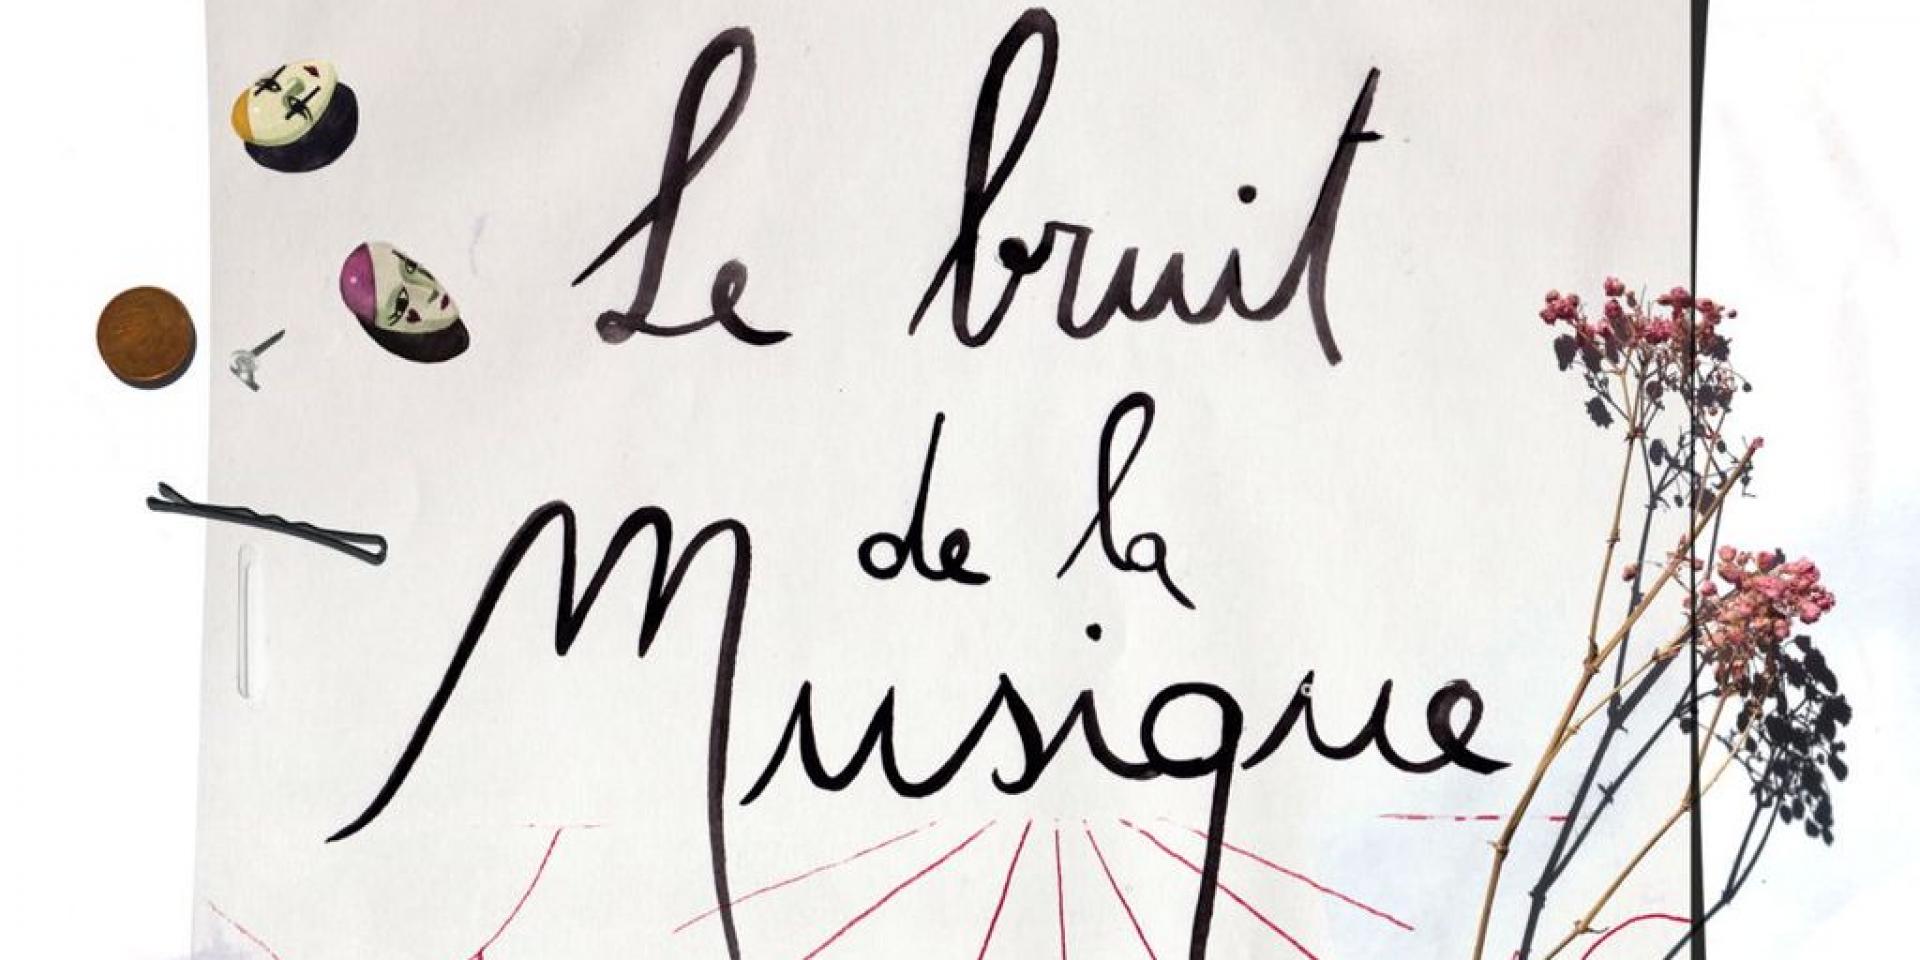 Le bruit
de la
Musique